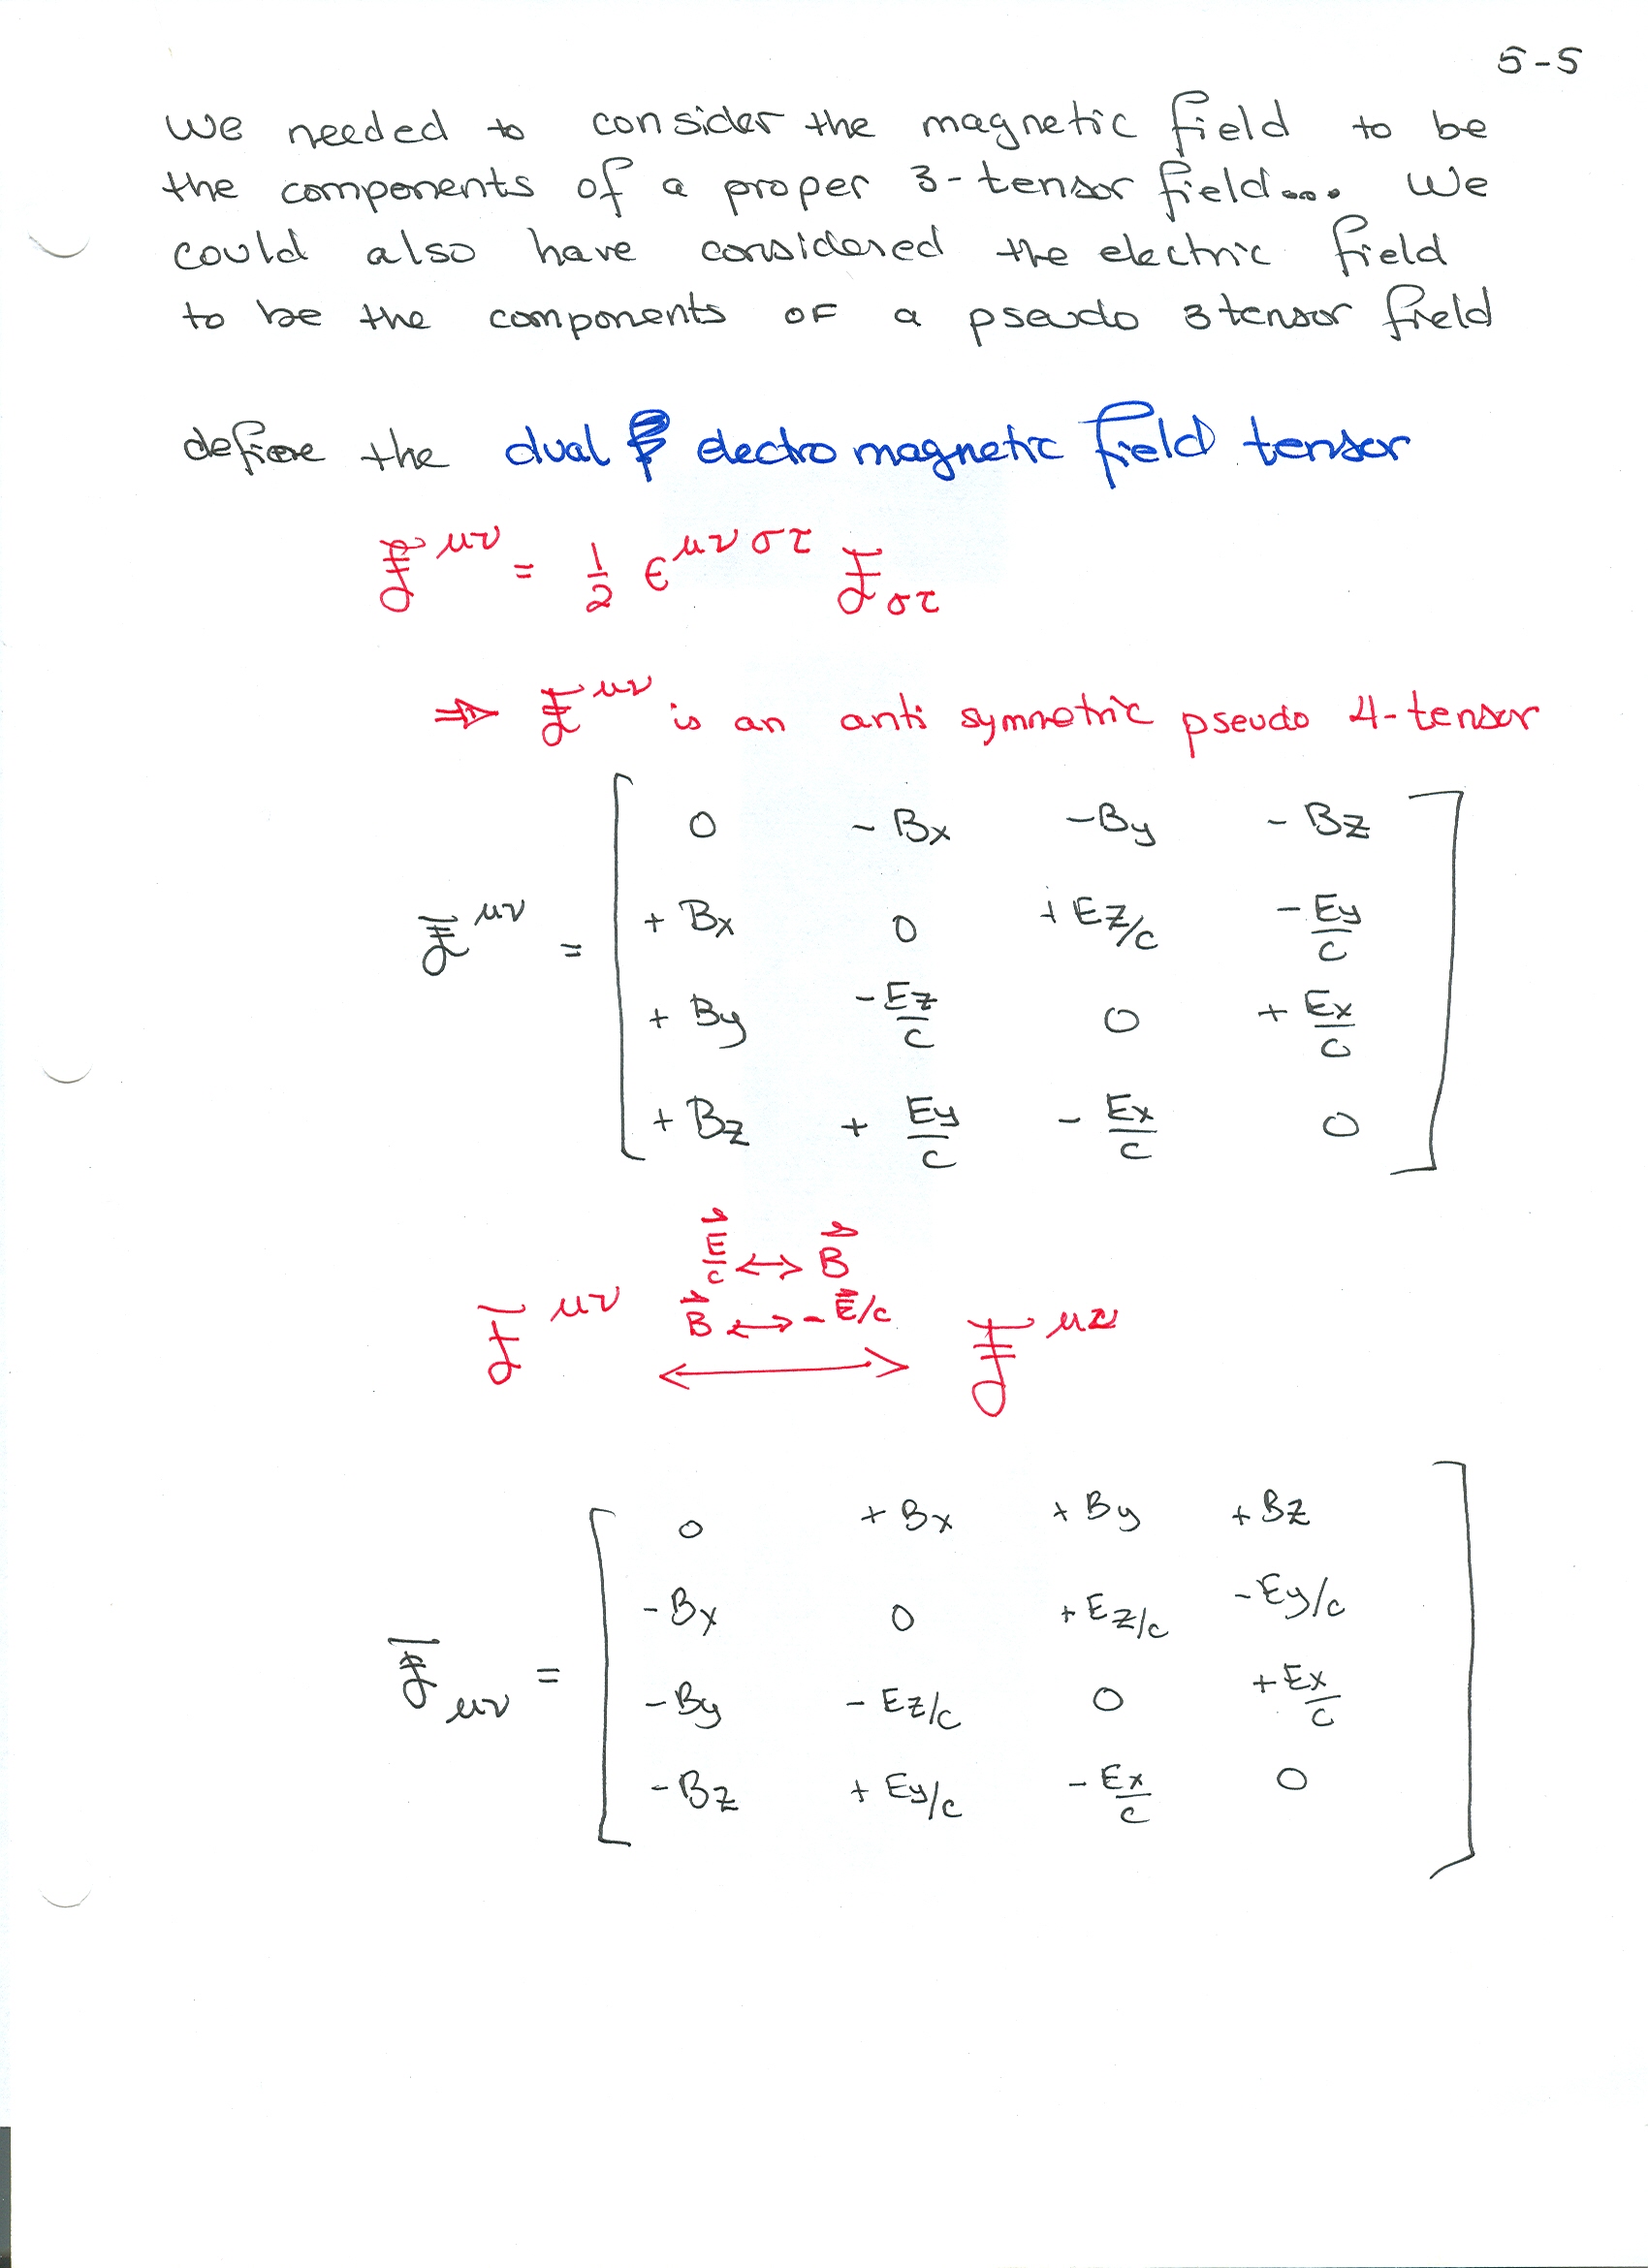 5-5
we needed to consider the magnetic field to be
the components of a proper 3-tensor field.... We
could also have considered the electric field
to be the components of a pseudo 3 tensor field
define the dual electromagnetic field tensor
ℱ^{μν} = 1/2 ϵ^{μνστ} ℱ_{στ}
⇒ ℱ^{μν} is an anti symmetric pseudo 4-tensor
0 - Bx - By - Bz
ℱ^{μν} = + Bx 0 + Ez/c - Ey/c
+ By - Ez/c 0 + Ex/c
+ Bz + Ey/c - Ex/c 0
E⃗/c ↔ B⃗
B⃗ ↔ - E⃗/c
ℱ^{μν} ⟷ ℱ^{μν}
0 + Bx + By + Bz
- Bx 0 + Ez/c - Ey/c
ℱ_{μν} = - By - Ez/c 0 + Ex/c
- Bz + Ey/c - Ex/c 0